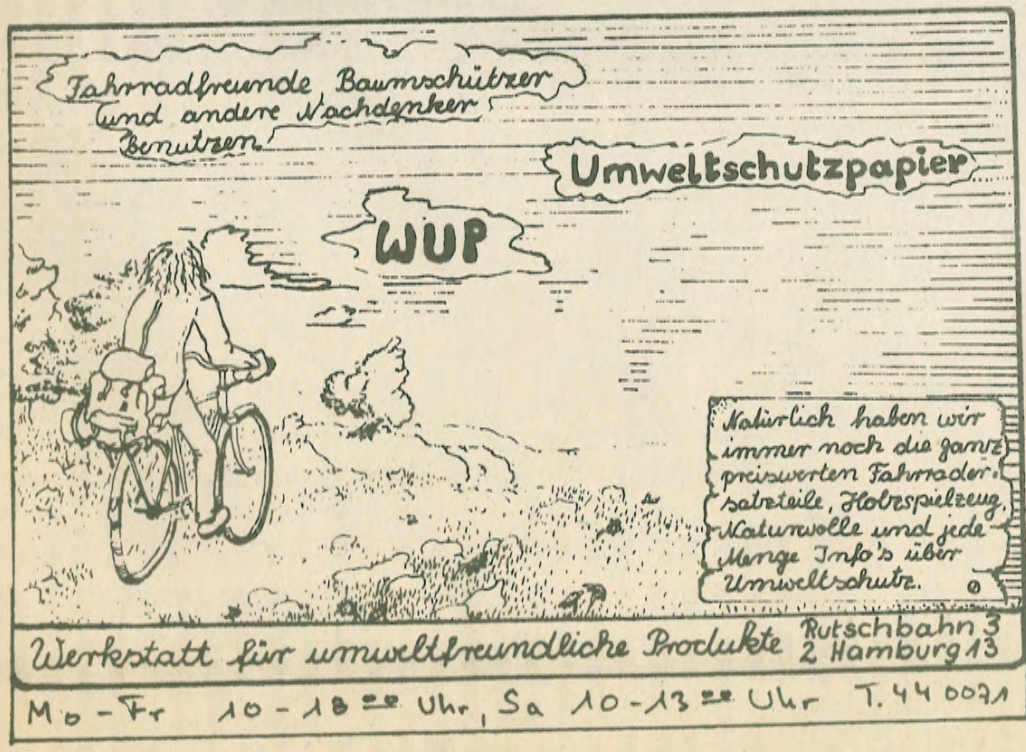 Fahrradfreunde, Baumschützer
und andere Nachdenker
benutzen
Umweltschutzpapier
WUP
Natürlich haben wir
immer noch die ganz
preiswerten Fahrrader-
satzteile, Holzspielzeug,
Naturwolle und jede
Menge Info's über
Umweltschutz.
Werkstatt für umweltfreundliche Produkte
Rutschbahn 3
2 Hamburg 13
Mo - Fr 10 - 18 00 Uhr, Sa 10 - 13 00 Uhr T. 44 00 71